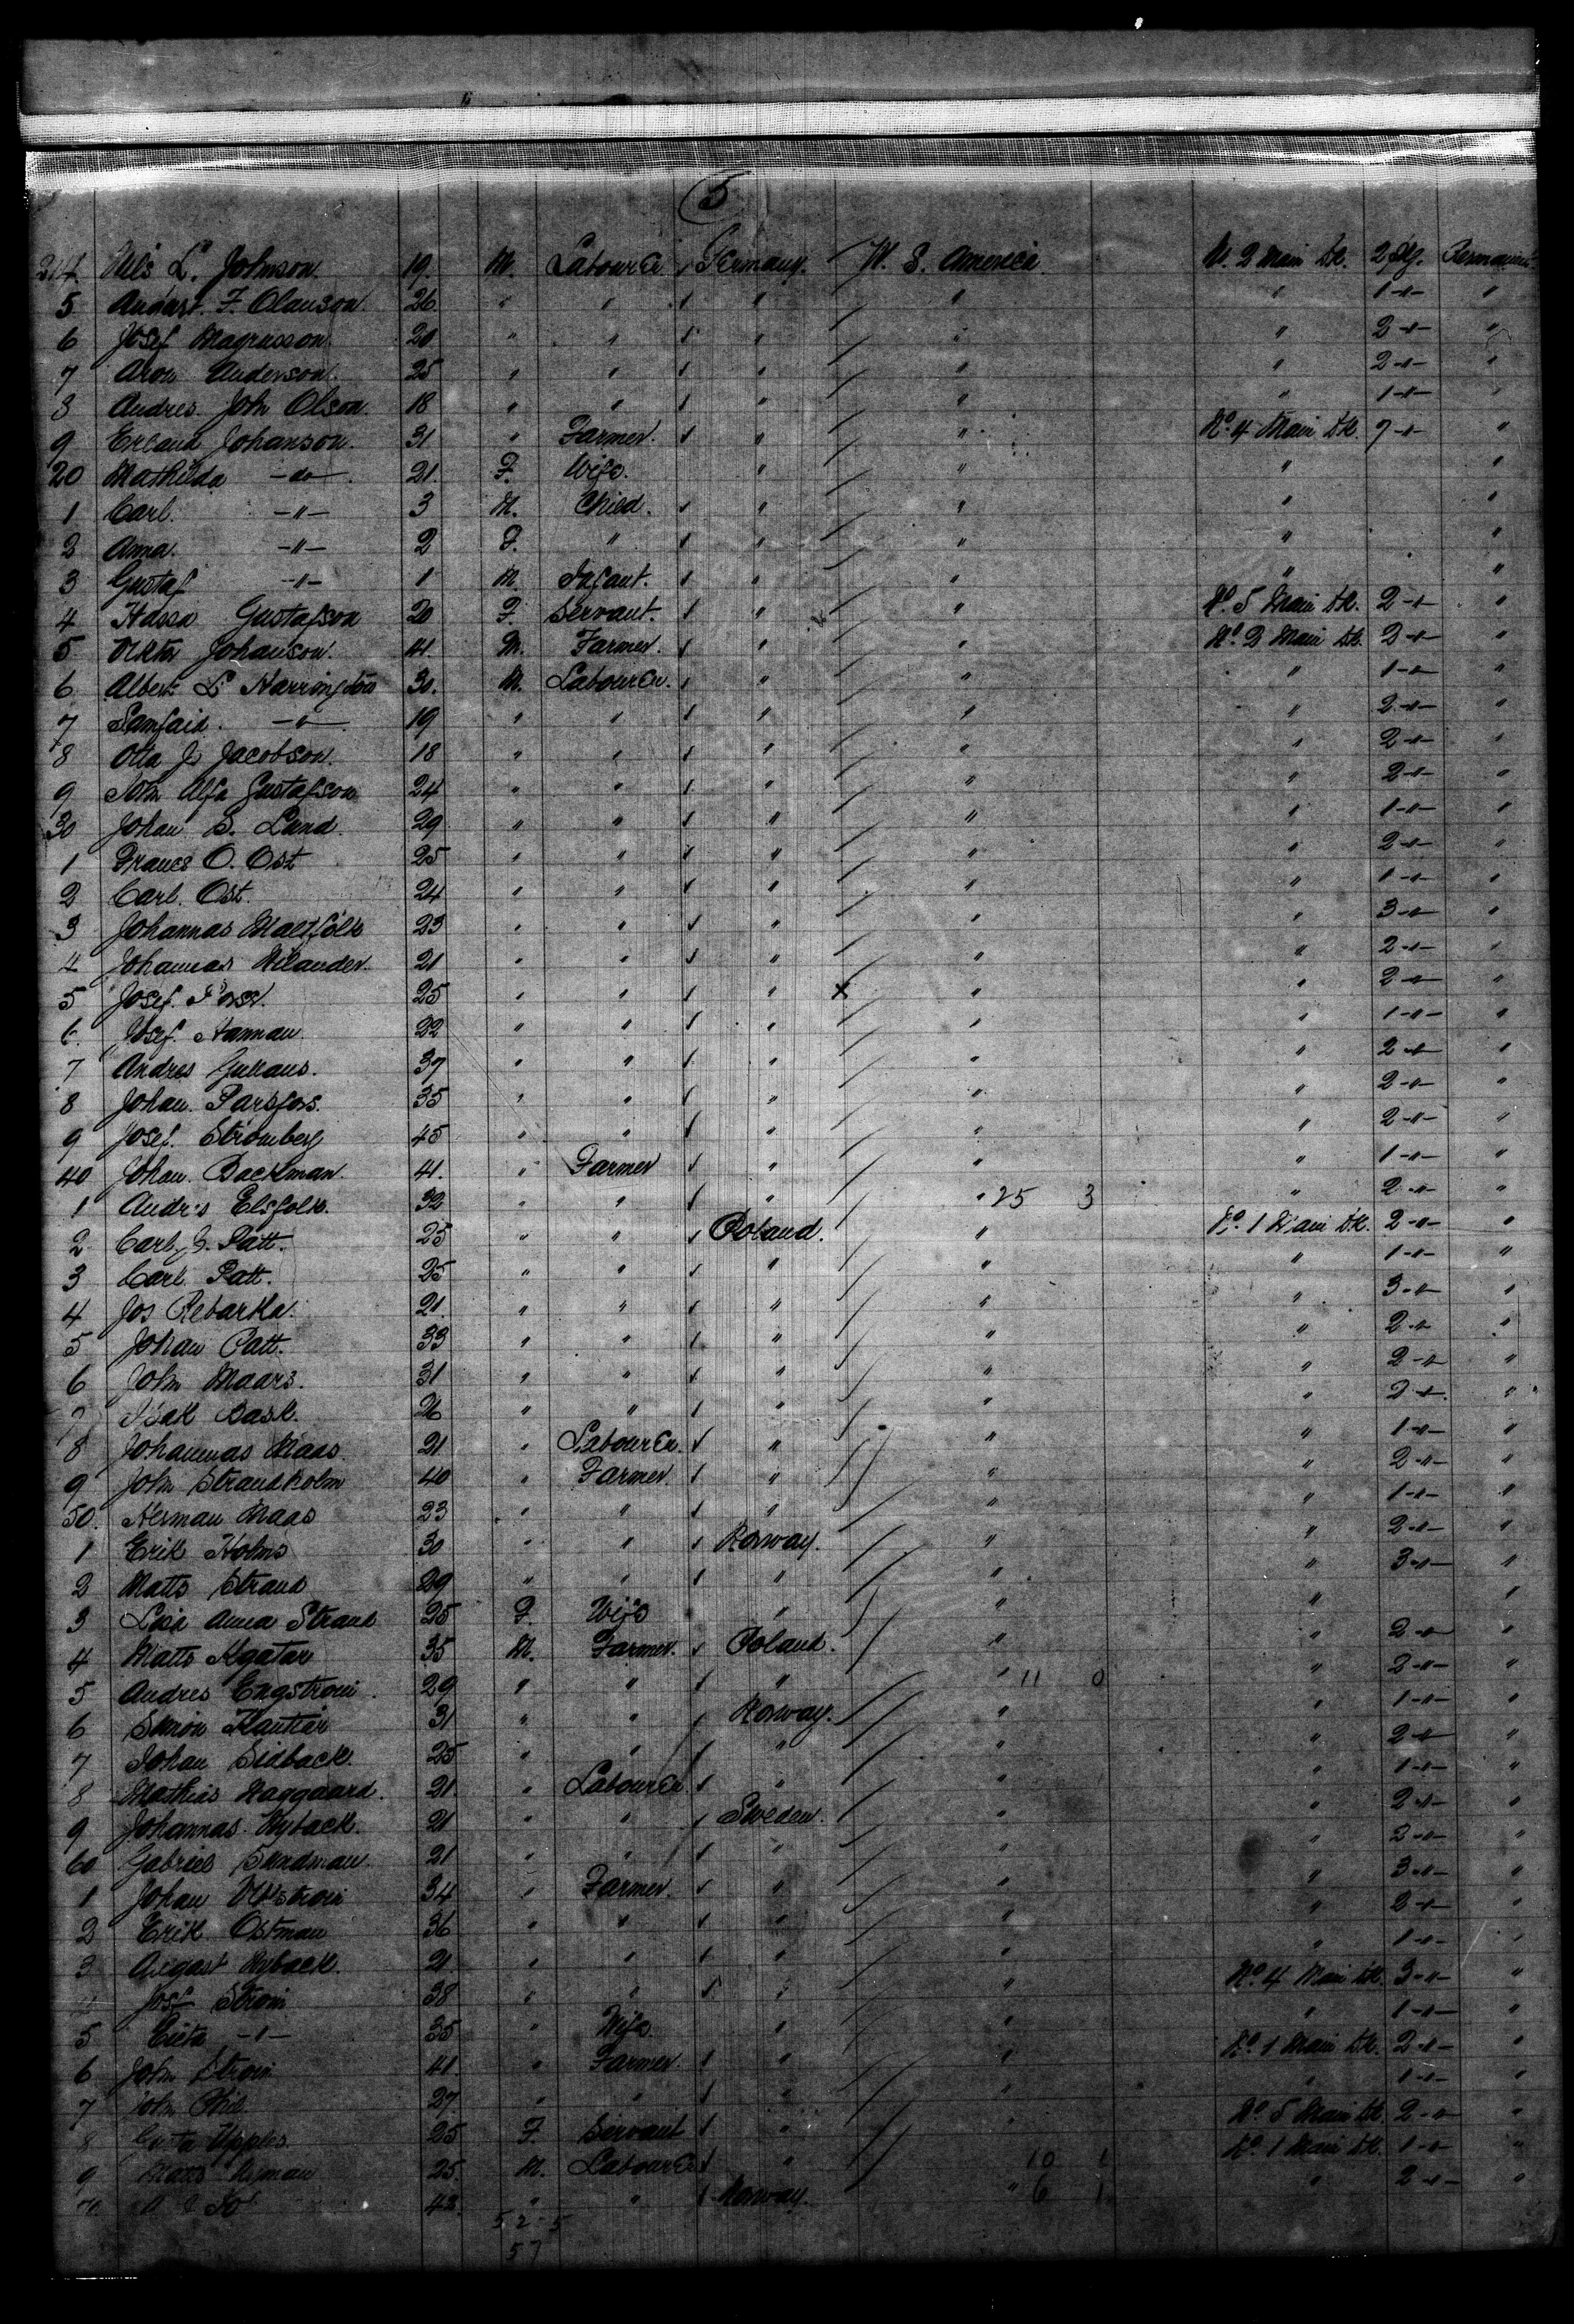 5
214 Nils L. Johnson 19. M. Labourer Germany. U. S. America N. 2 Main Dk. 2 pkg. Remaining
5 August. F. Olauson. 26. " " " " " 1 -"- "
6 Josef Magnusson 20 " " " " " 2 -"- "
7 Aron Anderson. 25 " " " " " 2 -"- "
8 Andres John Olson. 18 " " " " " 1 -"- "
9 Erland Johanson. 31 " Farmer. " " No. 4 Main Dk. 7 -"- "
20 Mathilda -do- 21. F. Wife. " " " "
1 Carl. -"- 3 M. Child. " " " "
2 Anna. -"- 2 F. " " " " "
3 Gustaf -"- 1 M. Infant. " " " "
4 Gustafson 20 F. Servant. " " No. 5 Main Dk. 2 -"- "
5 Viktor Johanson. 41. M. Farmer. " " No. 2 Main Dk. 2 -"- "
6 Albert L Harrington 30. M. Labourer. " " " 1 -"- "
7 -"- 19 " " " " " 2 -"- "
8 Otto J. Jacobson. 18 " " " " " 2 -"- "
9 John Alfa Gustafson 24 " " " " " 2 -"- "
30 Johan S. Lund. 29 " " " " " 1 -"- "
1 Francs O. Ost 25 " " " " " 2 -"- "
2 Carl. Ost. 24 " " " " " 1 -"- "
3 Johannas 23 " " " " " 3 -"- "
4 Johannas Nilander. 21 " " " " " 2 -"- "
5 Josef. 25 " " " X " " 2 -"- "
6. Josef. 22 " " " " " 1 -"- "
7 Andres 37 " " " " " 2 -"- "
8 Johan. Parsfors. 35 " " " " " 2 -"- "
9 Josef. Stromberg 45 " " " " " 2 -"- "
40 Johan. Backman. 41. " Farmer " " " 1 -"- "
1 Andr's Elsfolk. 32 " " " " 25 3 " 2 -"- "
2 Carl Patt. 25 " " Poland. " No. 1 Main Dk. 2 -"- "
3 Carl Patt. 25 " " " " " 1 -"- "
4 Jos Rebarka. 21. " " " " " 3 -"- "
5 Johan Patt. 33 " " " " " 2 -"- "
6 John Maars. 31 " " " " " 2 -"- "
7 Isak Bask. 26 " " " " " 2 -"- "
8 Johannas Maas. 21 " Labourer. " " " 1 -"- "
9 John Strandholm 40 " Farmer. " " " 2 -"- "
50. Herman Maas 23 " " " " " 1 -"- "
1 Erik Holms 30 " " Norway. " " 2 -"- "
2 Matts Strand 29 " " " " " 3 -"- "
3 Anna Strand 25 F. Wife " " " "
4 Matts 35 M. Farmer. Poland. " " 2 -"- "
5 Andres Engstrom. 29 " " " " 11 0 " 2 -"- "
6 Simon 31 " " Norway. " " 1 -"- "
7 Johan Sidback. 25 " " " " " 2 -"- "
8 Mathias Haggaard. 21. " Labourer " " " 1 -"- "
9 Johannas Nyback. 21 " " Sweden. " " 2 -"- "
60 Gabriel Sandman. 21 " " " " " 2 -"- "
1 Johan 34 " Farmer. " " " 3 -"- "
2 Erik Ostman 36 " " " " " 2 -"- "
3 August Nyback. 21 " " " " " 1 -"- "
4 Josf Strom 38 " " " " No. 4 Main Dk. 3 -"- "
5 -"- 35 " Wife " " " 1 -"- "
6 John Strom 41. " Farmer. " " No. 1 Main Dk. 2 -"- "
7 John 27 " " " " " 1 -"- "
8 25 F. Servant " " No. 5 Main Dk. 2 -"- "
9 Matts 25. M. Labourer " 10 1 No. 1 Main Dk. 1 -"- "
70. 42. " " Norway. " 6 1 " 2 -"- "
52-5
57